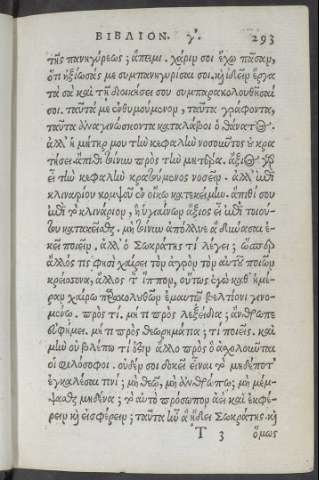 ΒΙΒΛΙΟΝ. γ΄. 293
τῆς πανηγύρεως; ἄπειμι. χάριν σοι ἔχω πᾶσαν,
ὅτι ἠξίωσάς με συμπανηγυρίσαι σοι. καὶ ἰδεῖν ἔργα
τὰ σὰ καὶ τῇ διοικήσει σου συμπαρακολουθῆσαί
σοι. ταῦτά με ἐνθυμούμενον, ταῦτα γράφοντα,
ταῦτα ἀναγινώσκοντα καταλάβοι ὁ θάνατος.
ἀλλ' ἡ μήτηρ μου τὴν κεφαλὴν νοσοῦντος οὐ κρα
τήσει. ἄπιθι τοίνυν πρὸς τὴν μητέρα. ἄξιος γὰρ
εἶ τὴν κεφαλὴν κρατούμενος νοσεῖν. ἀλλ' ἐπὶ
κλιναρίου κομψοῦ ἐν οἴκῳ κατεκείμην. ἄπιθί σου
ἐπὶ τὸ κλινάριον, ἢ ὑγιαίνων ἄξιος εἶ ἐπὶ τοιού-
του κατακεῖσθαι. μὴ τοίνυν ἀπόλλυε ἃ δύνασαι ἐ-
κεῖ ποιεῖν. ἀλλ' ὁ Σωκράτης τί λέγει; ὥσπερ
ἄλλός τις φησὶ χαίρει τὸν ἀγρὸν τὸν αὑτοῦ ποιῶν
κρείσσονα, ἄλλος τὸν ἵππον, οὕτως ἐγὼ καθ' ἡμέ-
ραν χαίρω παρακολουθῶν ἐμαυτῷ βελτίονι γινο-
μένῳ. πρὸς τί. μή τι πρὸς λεξείδια; ἄνθρωπε
εὐφήμει. μή τι πρὸς θεωρημάτια; τί ποιεῖς. καὶ
μὴν οὐ βλέπω τί ἐστιν ἄλλο πρὸς ὃ ἀσχολοῦνται
οἱ φιλόσοφοι. οὐδέν σοι δοκεῖ εἶναι τὸ μηδέποτ'
ἐγκαλέσαι τινί; μὴ θεῷ, μὴ ἀνθρώπῳ; μὴ μέμ-
ψασθαι μηδένα; τὸ αὐτὸ πρόσωπον ἀεὶ καὶ ἐκφέ-
ρειν καὶ εἰσφέρειν; ταῦτα ἦν ἃ ᾔδει Σωκράτης. καὶ
T 3 ὅμως